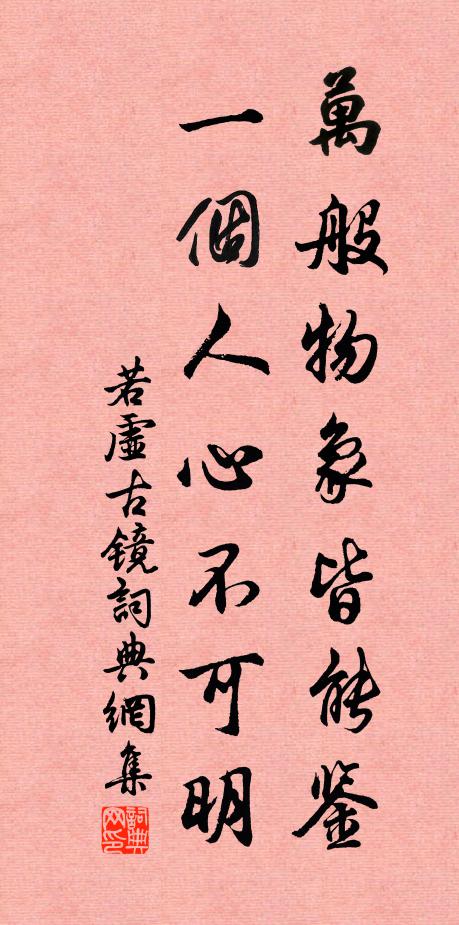 萬般物象皆能鉴
一個人心不可明
若虛古镜詞典網集
詞典网印